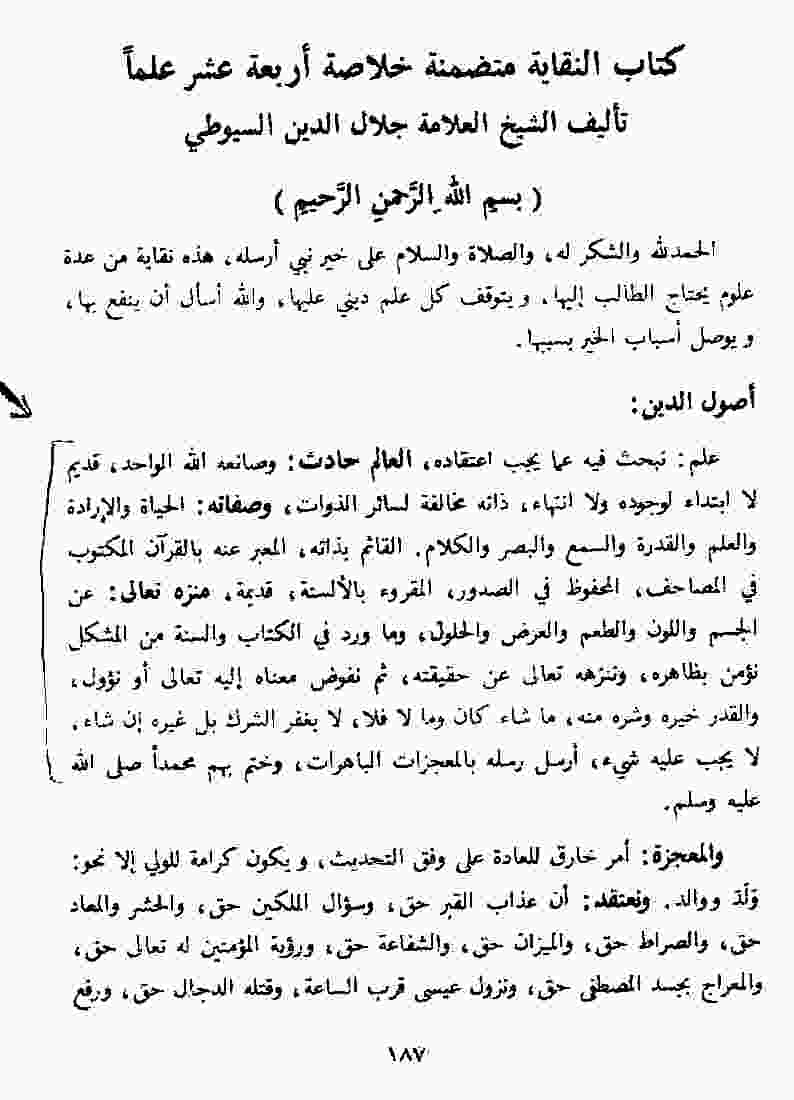 كتاب النقاية متضمنة خلاصة أربعة عشر علماً
تأليف الشيخ العلامة جلال الدين السيوطي
( بسم الله الرَّحمنِ الرَّحيمِ )
الحمدلله والشكر له، والصلاة والسلام على خير نبي أرسله، هذه نقاية من عدة
علوم يحتاج الطالب إليها، ويتوقف كل علم ديني عليها، والله أسأل أن ينفع بها،
ويوصل أسباب الخير بسببها.
أصول الدين:
علم: نبحث فيه عما يجب اعتقاده، العالم حادث: وصانعه الله الواحد، قديم
لا ابتداء لوجوده ولا انتهاء، ذاته مخالفة لسائر الذوات، وصفاته: الحياة والإرادة
والعلم والقدرة والسمع والبصر والكلام. القائم بذاته، المعبر عنه بالقرآن المكتوب
في المصاحف، المحفوظ في الصدور، المقروء بالألسنة، قديمة. منزه تعالى: عن
الجسم واللون والطعم والعرض والحلول، وما ورد في الكتاب والسنة من المشكل
نؤمن بظاهره، وننزهه تعالى عن حقيقته، ثم نفوض معناه إليه تعالى أو نؤول،
والقدر خيره وشره منه، ما شاء كان وما لا فلا، لا يغفر الشرك بل غيره إن شاء.
لا يجب عليه شيء، أرسل رسله بالمعجزات الباهرات، وختم بهم محمدأ صلى الله
عليه وسلم.
والمعجزة: أمر خارق للعادة على وفق التحديث، ويكون كرامة للولي إلا نحو:
وَلَدَ ووالد. ونعتقد: أن عذاب القبر حق، وسؤال الملكين حق، والحشر والمعاد
حق، والصراط حق، والميزان حق، والشفاعة حق، ورؤية المؤمنين له تعالى حق،
والمعراج بجسد المصطفى حق، ونزول عيسى قرب الساعة، وقتله الدجال حق، ورفع
١٨٧